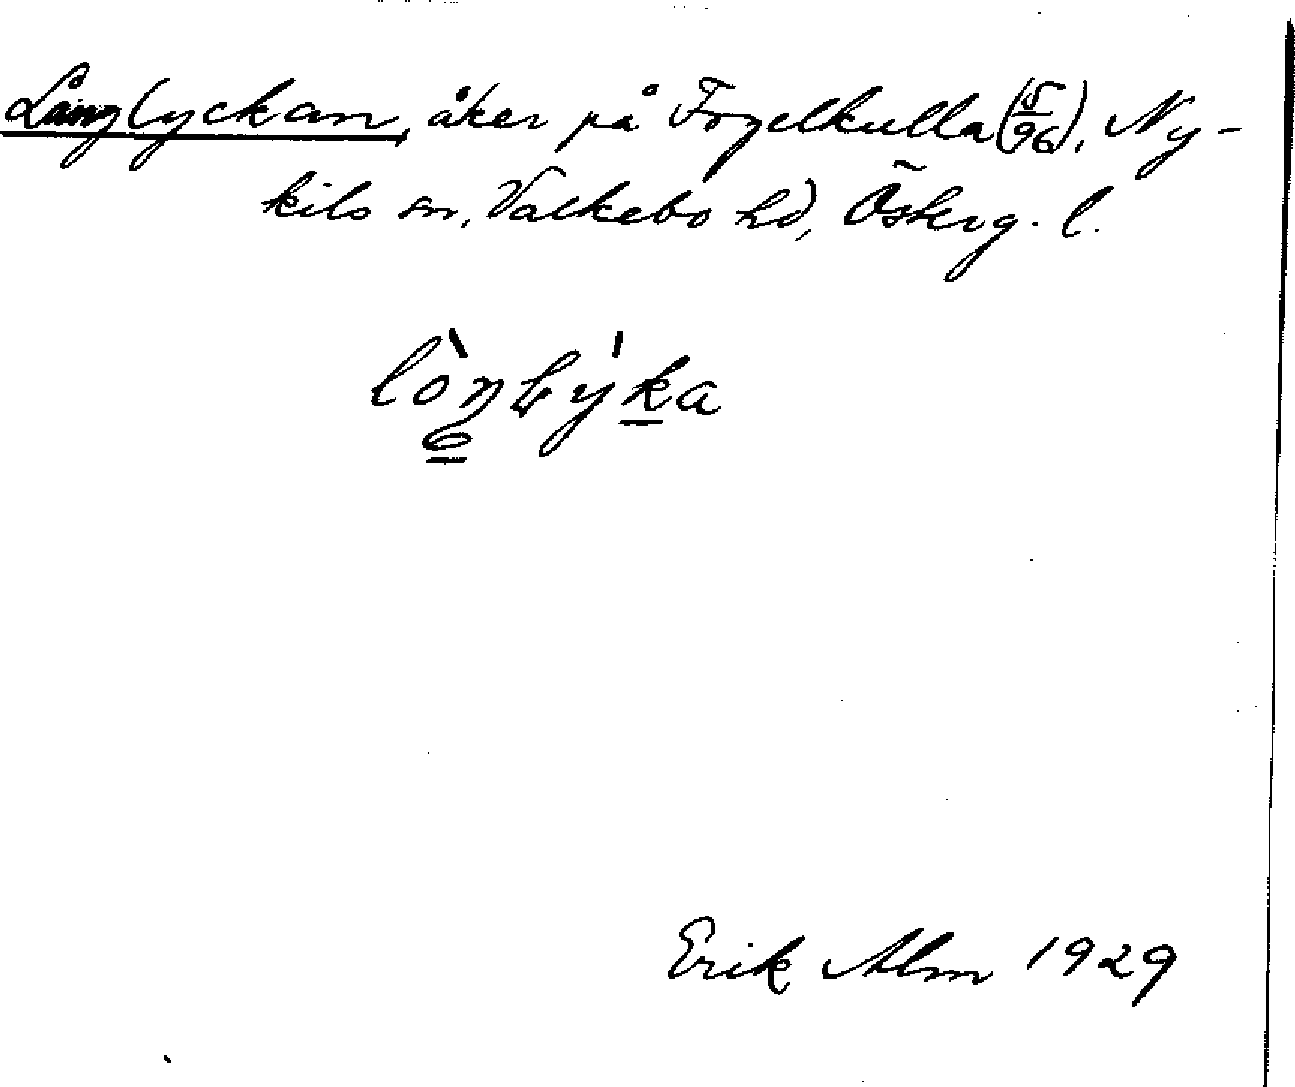 Långlyckan, åker på Fogelkulla (5/96), Ny-
kils sn, Valkebo hd, Österg. l.
Erik Alm 1929